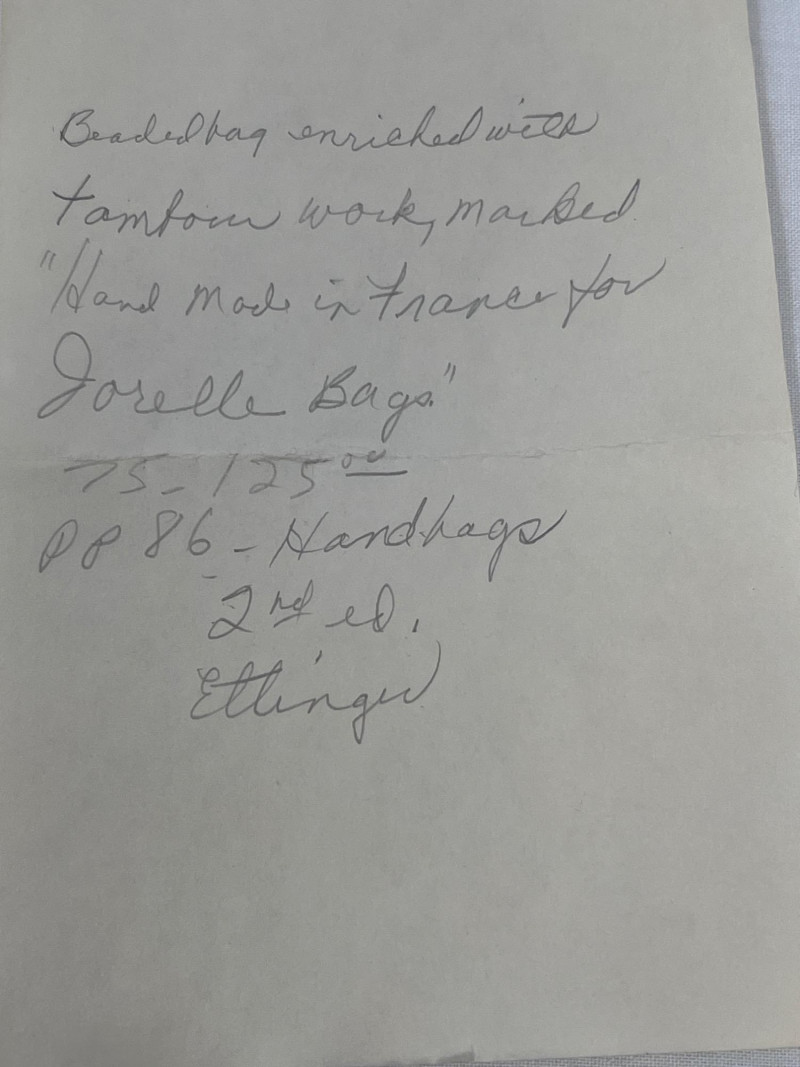 Beaded bag enriched with
tambour work, marked
"Hand Made in France for
Jorelle Bags."
75-125⁰⁰
PP 86 - Handbags
2nd ed.
Ettinger